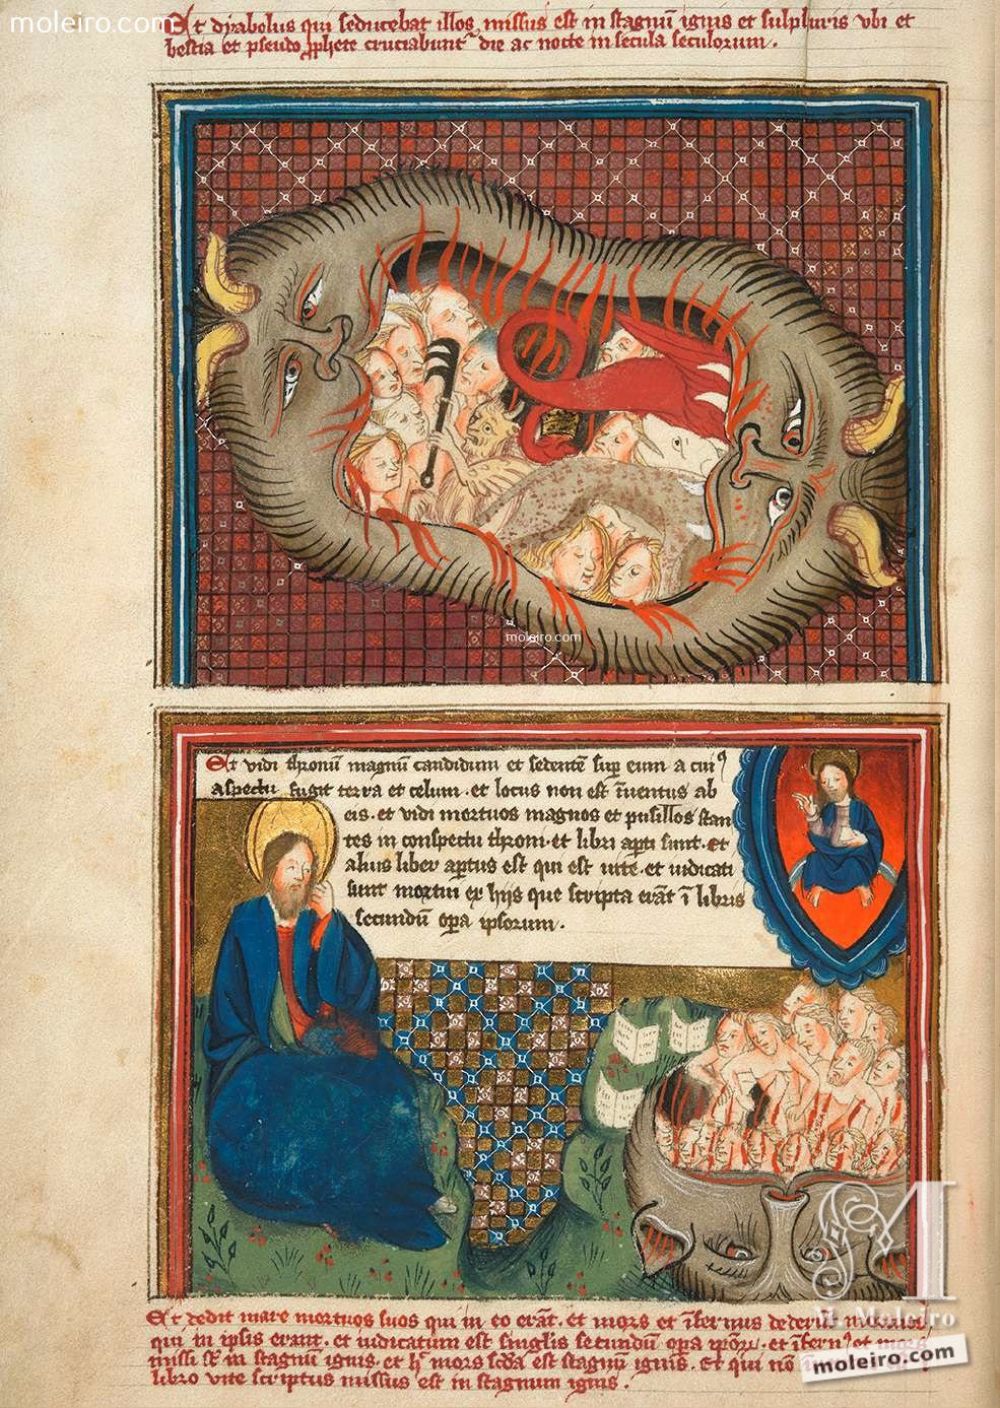 moleiro.com
Et dyabolus qui seducebat illos missus est in stagnum ignis et sulphuris vbi et
bestia et pseudo pphete cruciabunt' die ac nocte in secula seculorum.
moleiro.com
Et vidi thronū magnū candidum et sedentē sup eum a cui9
aspectu fugit terra et celum. et locus non est īuentus ab
eis. et vidi mortuos magnos et pusillos stan
tes in conspectu throni. et libri apti sunt. et
alius liber aptus est qui est uite. et iudicati
sunt mortui ex hijs que scripta erāt ī libris
secundū opa ipsorum.
Et dedit mare mortuos suos qui in eo erāt. et mors et īfernus dederūt
qui in ipsis erant. et iudicatum est singlis secundū opa et īfern9 et mors
missi st in stagnū ignis. et h mors scda est stagnū ignis. Et qui nō
libro vite scriptus missus est in stagnum ignis.
M
M. Moleiro
moleiro.com